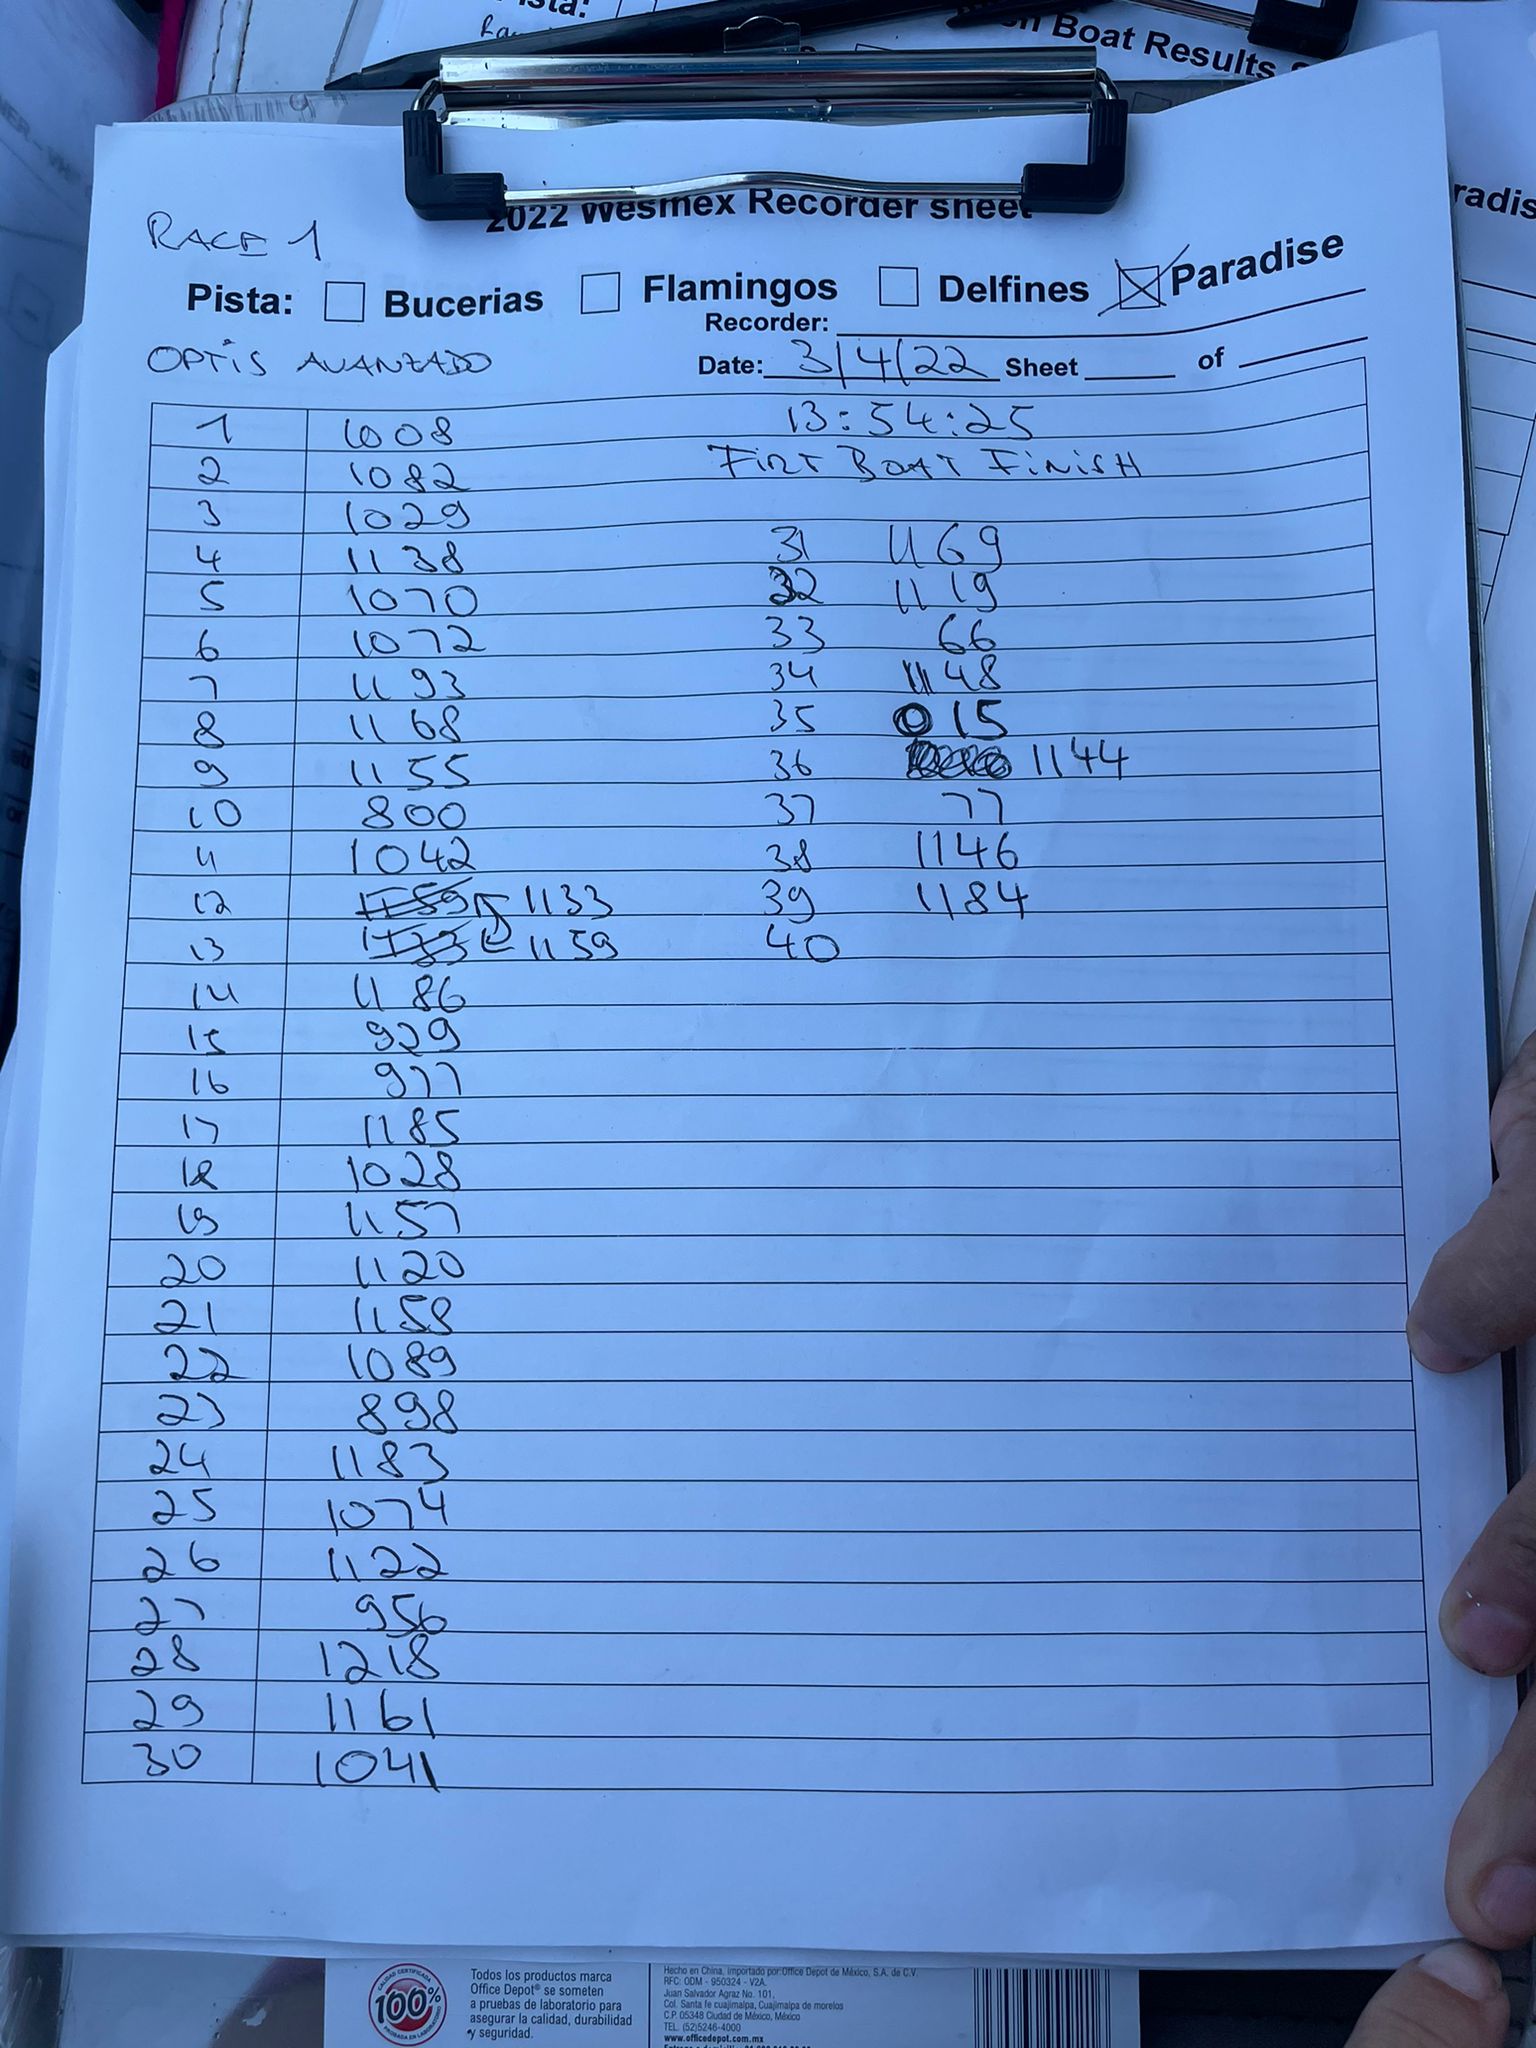 ista:
n Boat Results
radis
2022 Wesmex Recorder sheet
RACE 1
Pista: Bucerias Flamingos Delfines Paradise
Recorder:
OPTIS AVANZADO
Date: 3/4/22 Sheet of
1 1008 13:54:25
2 1082 FIRT BOAT FINISH
3 1029
4 1138 31 1169
5 1070 32 1119
6 1072 33 66
7 1193 34 1148
8 1168 35 015
9 1155 36 1144
10 800 37 77
11 1042 38 1146
12 1159 1133 39 1184
13 1133 1159 40
14 1186
15 929
16 977
17 1185
18 1028
19 1157
20 1120
21 1158
22 1089
23 898
24 1183
25 1074
26 1122
27 956
28 1218
29 1161
30 1041
CALIDAD CERTIFICADA
100%
PROBADA EN LABORATORIO
Todos los productos marca
Office Depot® se someten
a pruebas de laboratorio para
asegurar la calidad, durabilidad
y seguridad.
Hecho en China. Importado por:Office Depot de México, S.A. de C.V.
RFC: ODM - 950324 - V2A.
Juan Salvador Agraz No. 101,
Col. Santa fe cuajimalpa, Cuajimalpa de morelos
C.P. 05348 Ciudad de México, México
TEL. (52)5246-4000
www.officedepot.com.mx